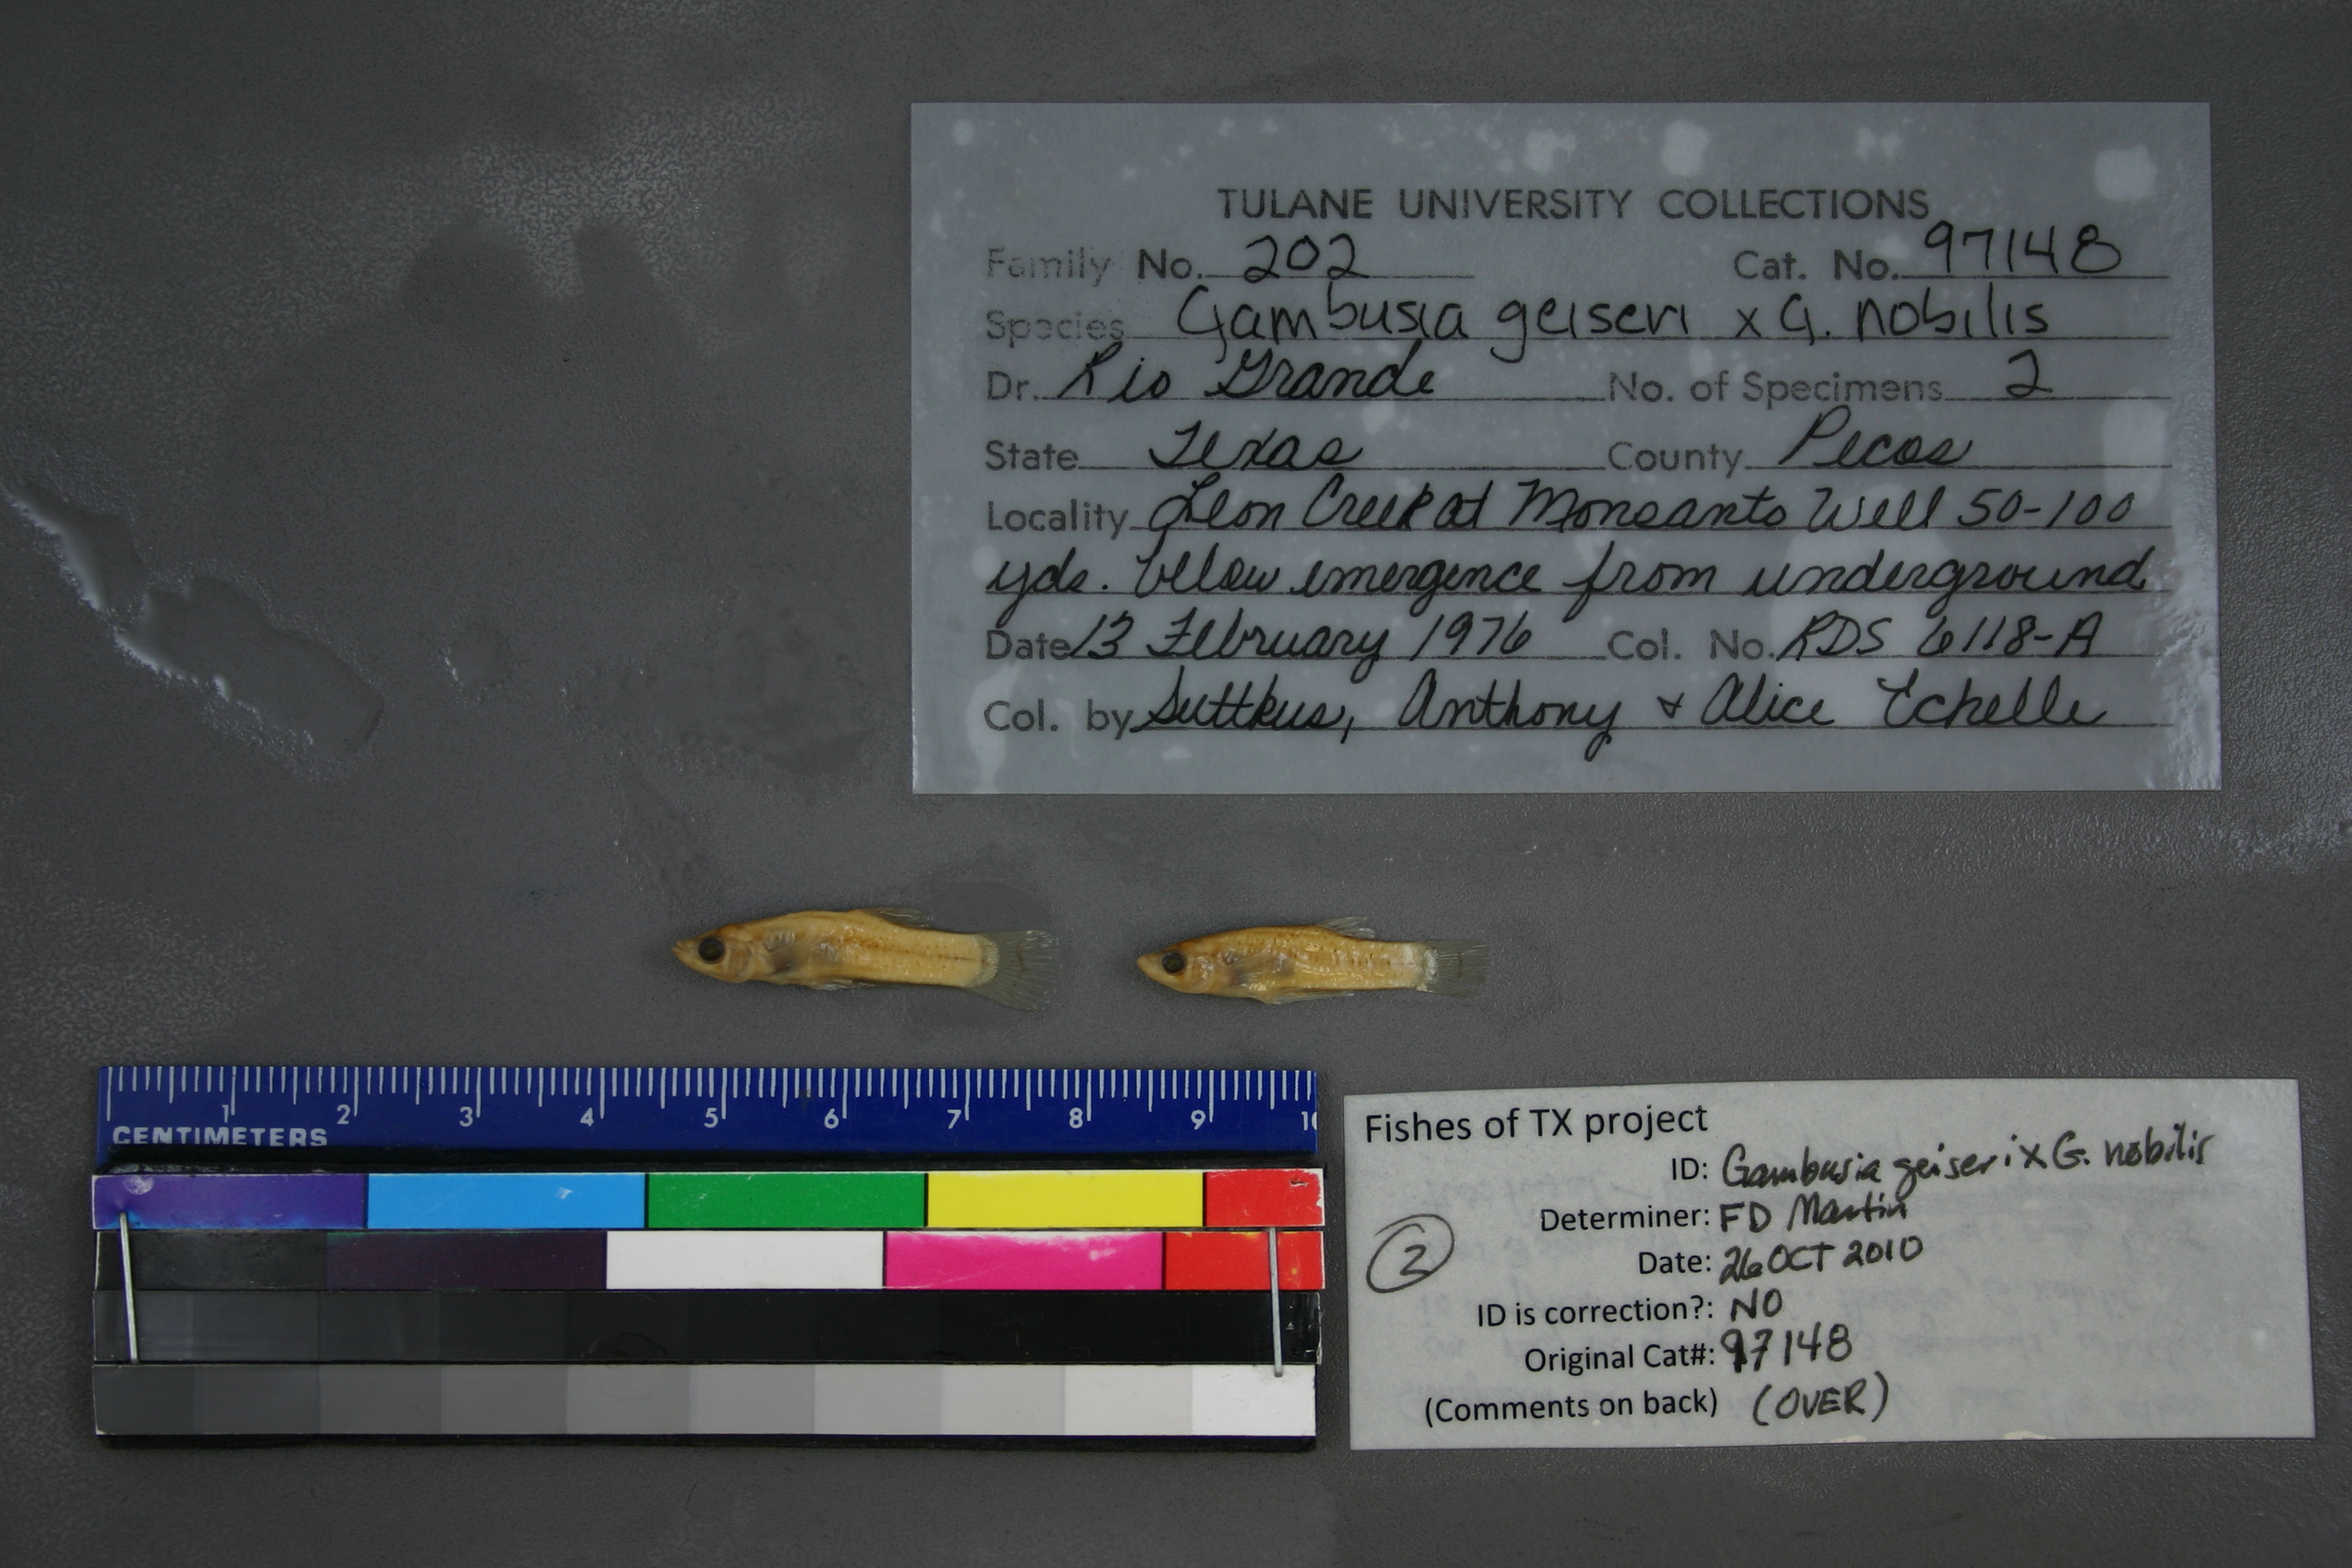 TULANE UNIVERSITY COLLECTIONS
Family No. 202 Cat. No. 97148
Species Gambusia geiseri x G. nobilis
Dr. Rio Grande No. of Specimens 2
State Texas County Pecos
Locality Leon Creek at Monsanto Well 50-100
yds. below emergence from underground
Date 13 February 1976 Col. No. RDS 6118-A
Col. by Suttkus, Anthony & Alice Echelle
1 2 3 4 5 6 7 8 9 10
CENTIMETERS
Fishes of TX project
ID: Gambusia geiseri x G. nobilis
Determiner: FD Martin
2
Date: 26 OCT 2010
ID is correction?: NO
Original Cat#: 97148
(Comments on back) (OVER)